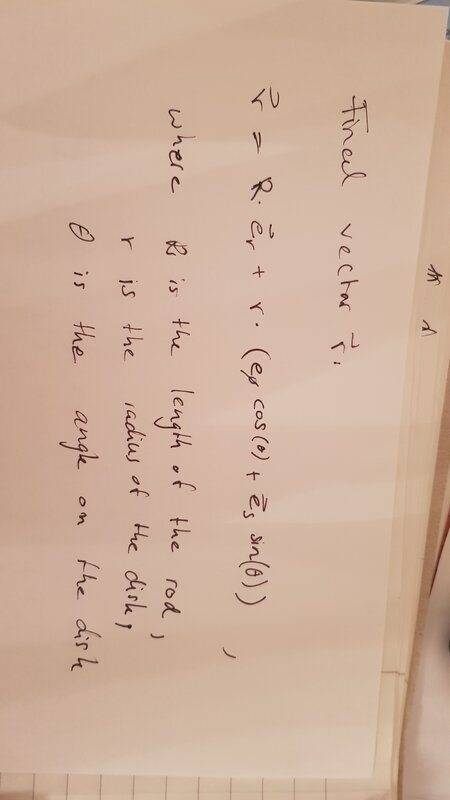 Final vector r⃗.
r⃗ = R·e⃗r + r·(eφ cos(θ) + e⃗s sin(θ)),
where R is the length of the rod,
r is the radius of the disk,
θ is the angle on the disk